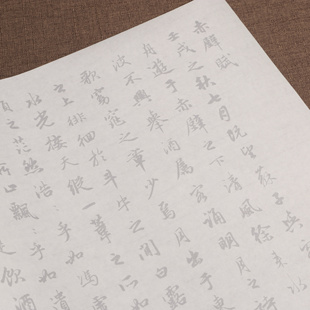 赤壁賦
壬戌之秋七月既望蘇子與
舟遊于赤壁之下清風徐來
波不興舉酒屬客誦明月之詩
歌窈窕之章少焉月出于東
之上徘徊於斗牛之間白露
水光接天縱一葦之所如
之茫然浩浩乎如馮虛
飄飄乎如遺
飲酒